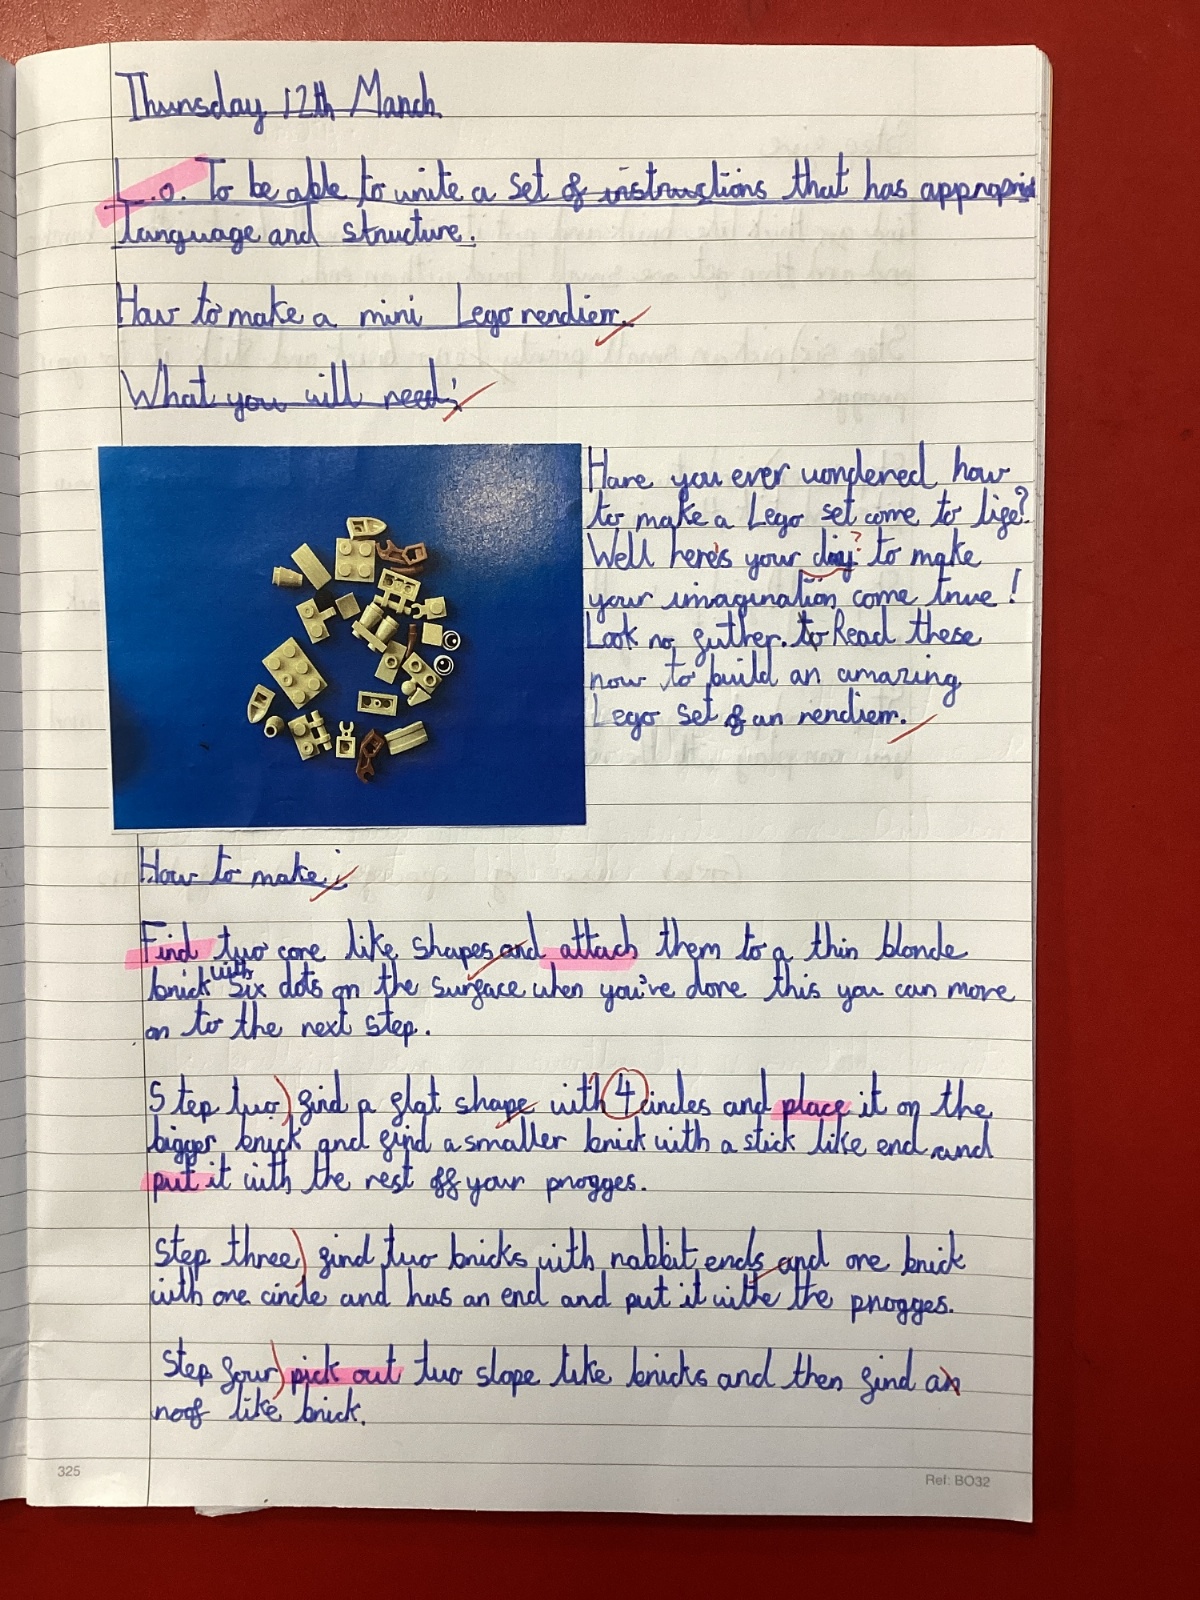 Thursday 12th March
L.o. To be able to write a set of instructions that has appropriat
language and structure.
How to make a mini Lego rendierr.
What you will need:
Have you ever wondered how
to make a Lego set come to life?
Well here's your diy? to make
your imagination come true!
Look no futher. to Read these
now to build an amazing
Lego set of an rendierr.
How to make:
Find two cone like shapes and attach them to a thin blonde
brick with six dots on the surface when you've done this you can move
on to the next step.
Step two) find a flat shape with 4 circles and place it on the
bigger brick and find a smaller brick with a stick like end and
put it with the rest off your progges.
step three) find two bricks with rabbit ends and one brick
with one circle and has an end and put it withe the progges.
step four) pick out two slope like bricks and then find an
roof like brick.
325
Ref: BO32